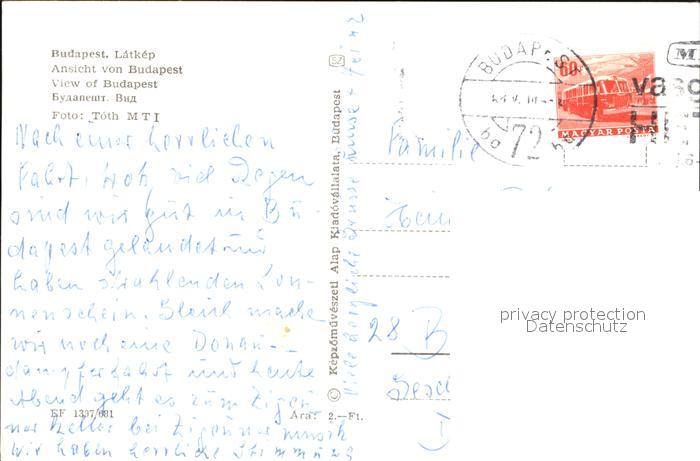 Budapest. Látkép
Ansicht von Budapest
View of Budapest
Будапешт. Вид
Foto: Tóth MTI
Nach einer herrlichen
Fahrt, trotz viel Regen
sind wir gut in Bu-
dapest gelandet und
haben strahlenden Son-
nenschein. Gleich mache
wir noch eine Donau-
dampferfahrt und heute
Abend geht es zum Zigeu-
ner Keller bei Zigeunermusik
wir haben herrliche Stimmung
EF 1337/681
Ára: 2.—Ft.
© Képzőművészeti Alap Kiadóvállalata, Budapest
Viele herzliche Grüsse
BUDAPEST
72
60
MAGYAR POSTA
M
vasc
Familie
28 B
privacy protection
Datenschutz